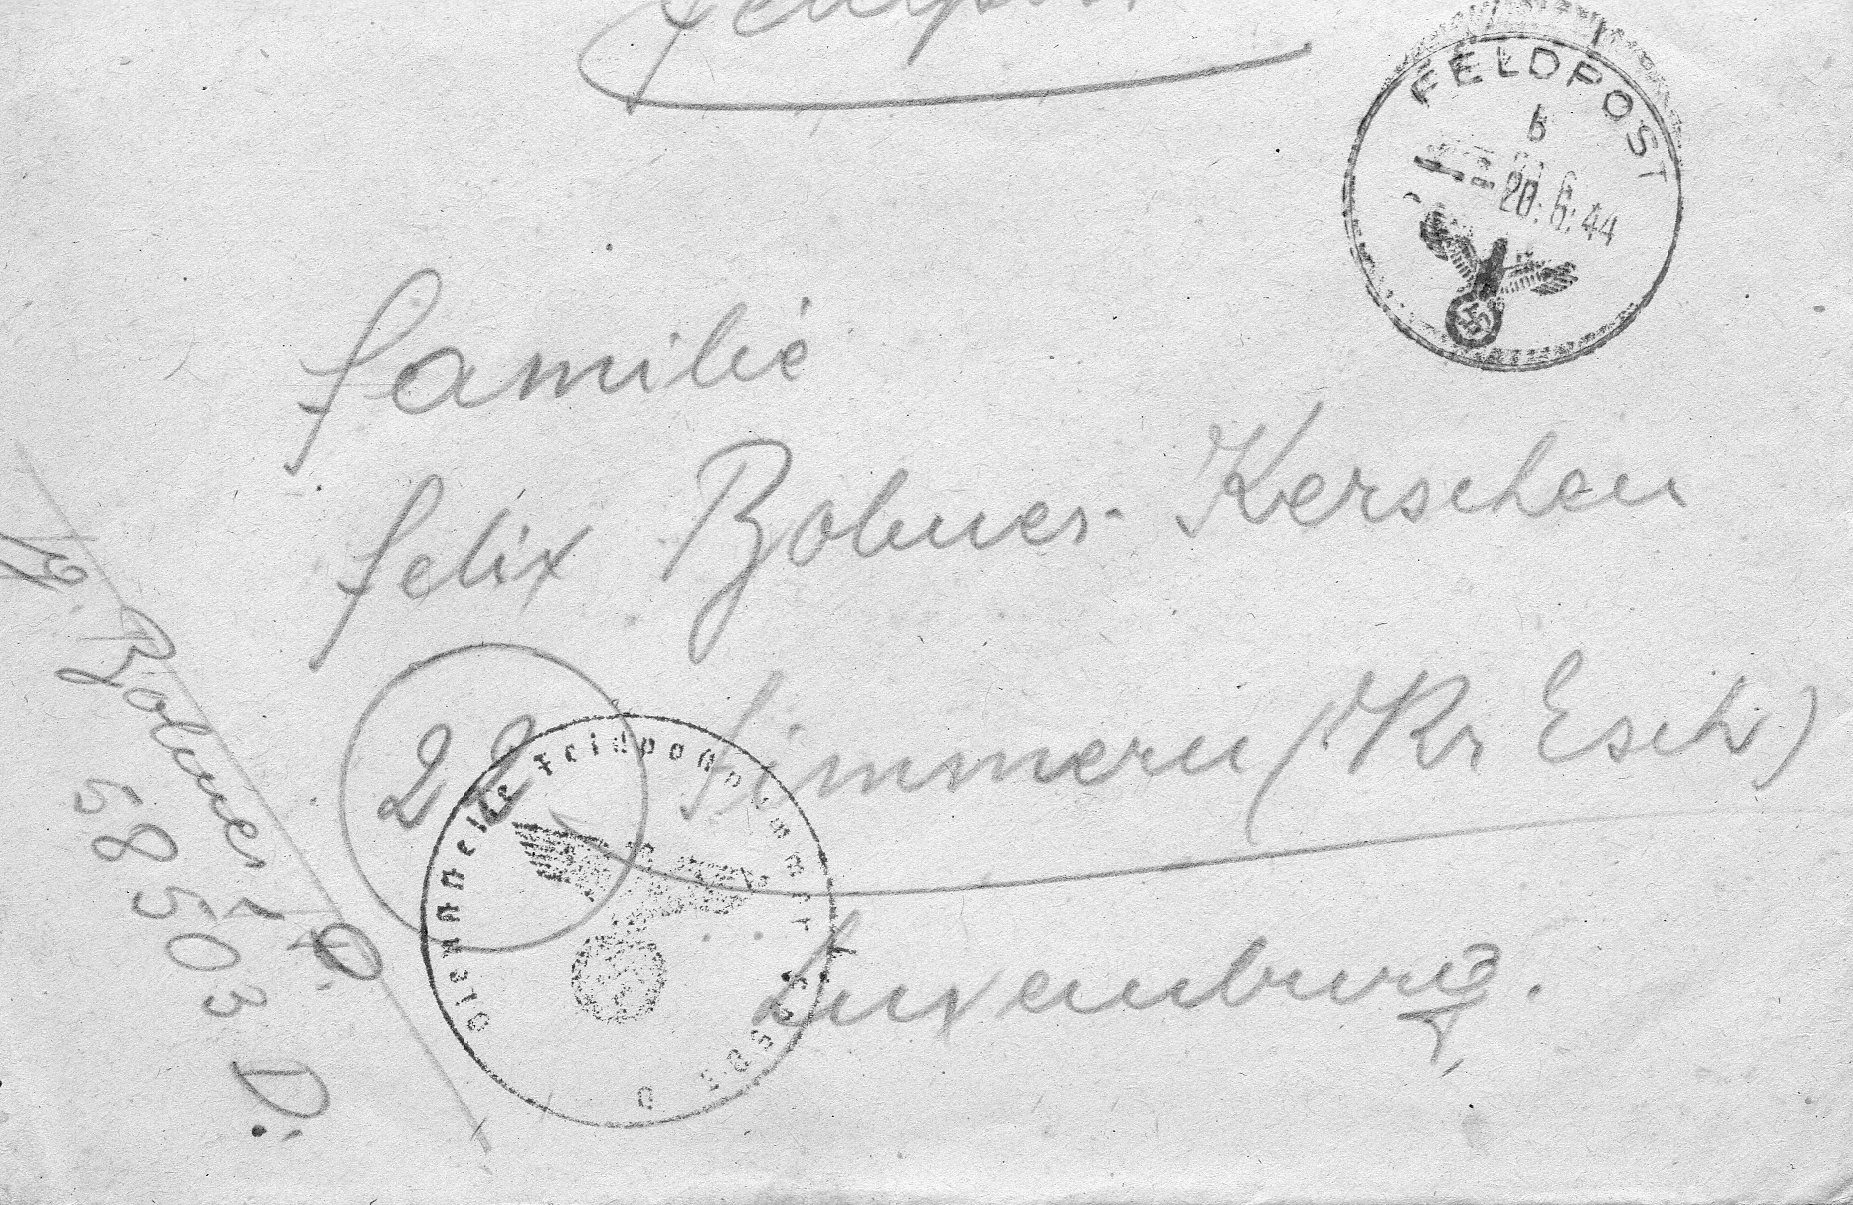 Feldpost
FELDPOST
b
20.6.44
Familie
Felix Bohner-Kerschen
22 Simmern (Kr Esch)
Luxemburg.
Dienststelle Feldpostnummer
Bohner
58503 D